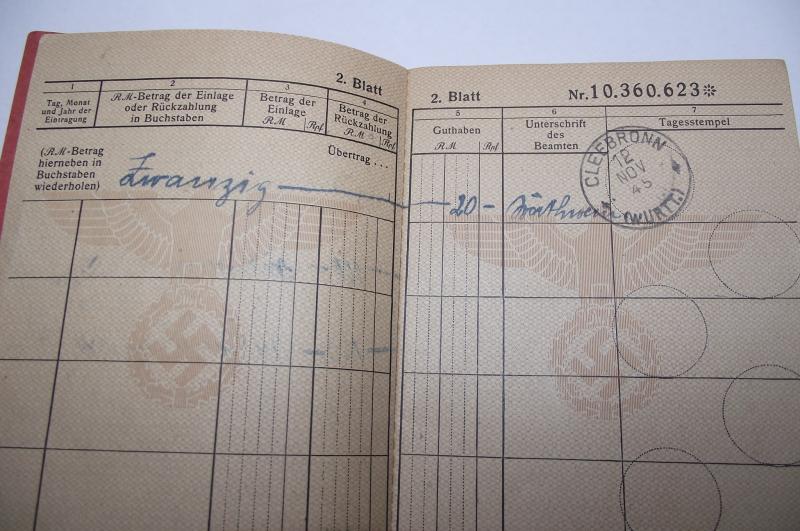 2. Blatt
1
2
3
4
Tag, Monat und Jahr der Eintragung
RM-Betrag der Einlage oder Rückzahlung in Buchstaben
Betrag der Einlage
RM Rpf
Betrag der Rückzahlung
RM
(RM-Betrag hierneben in Buchstaben wiederholen)
Übertrag ...
Zwanzig
2. Blatt
Nr. 10.360.623*
5
6
7
Guthaben
RM Rpf
Unterschrift des Beamten
Tagesstempel
20 –
CLEEBRONN
12
NOV
45
(WÜRTT.)